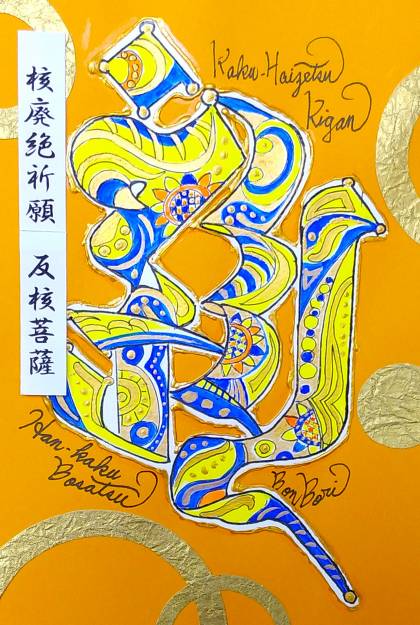 核廃絶祈願 反核菩薩
Kaku-Haizetsu
Kigan
Han-kaku
Bosatsu
BonBori